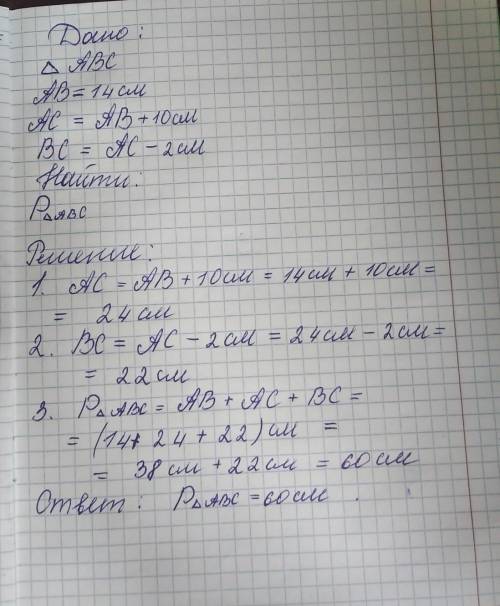 Дано:
△ ABC
AB = 14 см
AC = AB + 10 см
BC = AC - 2 см
Найти:
P△ABC
Решение:
1. AC = AB + 10 см = 14 см + 10 см =
= 24 см
2. BC = AC - 2 см = 24 см - 2 см =
= 22 см
3. P△ABC = AB + AC + BC =
= (14 + 24 + 22) см =
= 38 см + 22 см = 60 см
Ответ: P△ABC = 60 см.